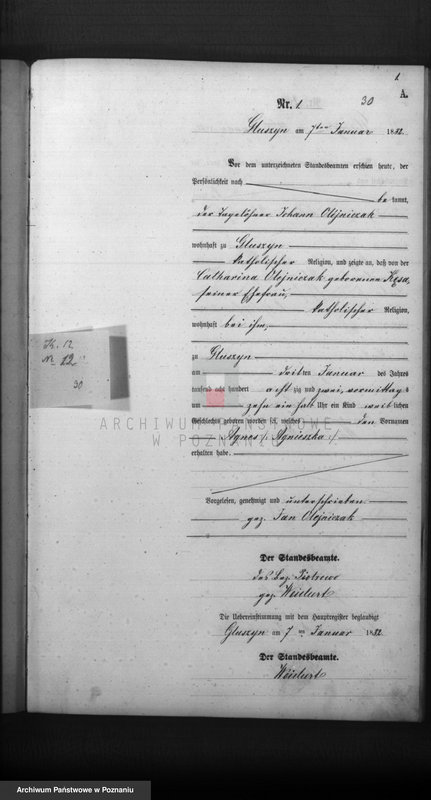 1
30
A.
Nr. 1
Gluszyn am 7ten Januar 1882
Vor dem unterzeichneten Standesbeamten erschien heute, der
Persönlichkeit nach
be kannt,
der Tagelöhner Johann Olejniczak
wohnhaft zu Gluszyn
katholischer Religion, und zeigte an, daß von der
Catharina Olejniczak geborenen
seiner Ehefrau,
katholischer Religion,
wohnhaft bei ihm,
zu Gluszyn
am dritten Januar des Jahres
tausend acht hundert acht zig und zwei, vormittag s
um zehn ein halb Uhr ein Kind weib lichen
Geschlechts geboren worden sei, welches den Vornamen
Agnes /: Agnieszka :/
erhalten habe.
Vorgelesen, genehmigt und unterschrieben
gez. Jan Olejniczak
Der Standesbeamte.
des Bez. Piotrowo
gez.
Die Uebereinstimmung mit dem Hauptregister beglaubigt
Gluszyn am 7 ten Januar 1882
Der Standesbeamte.
K. 12
No 12
30
ARCHIWUM PAŃSTWOWE
W POZNANIU
Archiwum Państwowe w Poznaniu